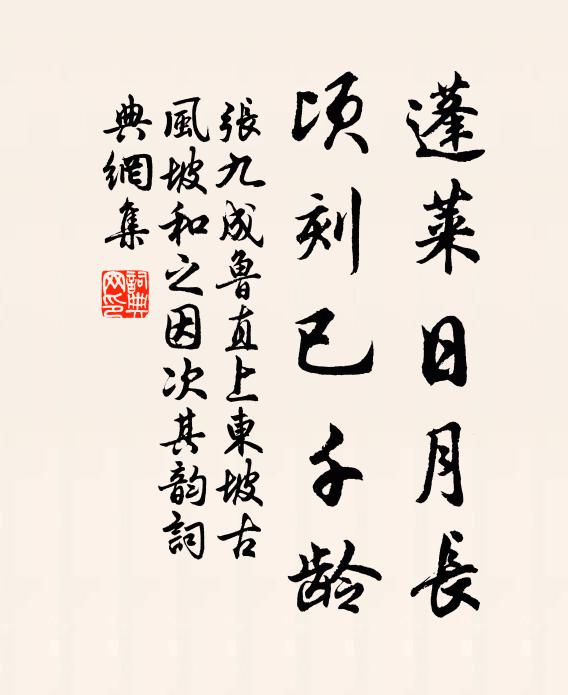 蓬莱日月長
頃刻已千龄
張九成魯直上東坡古
風坡和之因次其韵詞
典網集
詞典
网印